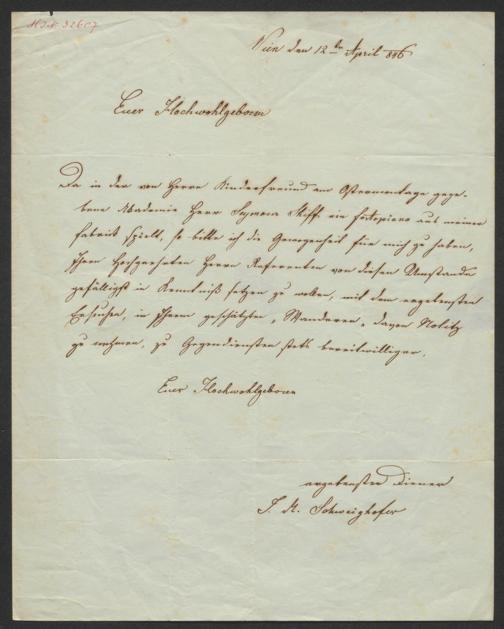 Wien den 12ten April 846
Euer Hochwohlgeboren
Da in der von Herrn Kinderfreund am Ostermontage gege-
bene Akademie Herr Seymour Schiff ein fortepiano aus meiner
Fabrik spielt, so bitte ich die Gewogenheit für mich zu haben,
Ihren Hochgeehrten Herrn Referenten von diesem Umstande
gefälligst in Kenntniß setzen zu wollen, mit dem ergebensten
Ersuchen, in Ihrem geschätzten „Wanderer„ davon Notitz
zu nehmen, zu Gegendiensten stets bereitwilliger.
Euer Hochwohlgeboren
ergebenster Diener
J. M. Schweighofer